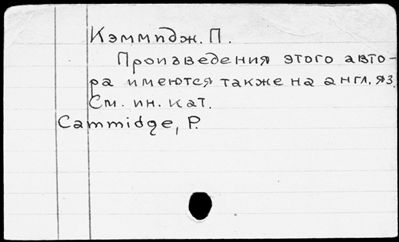 Кэммидж. П.
Произведения этого авто-
ра имеются также на англ. яз.
См. ин. кат.
Cammidge, P.